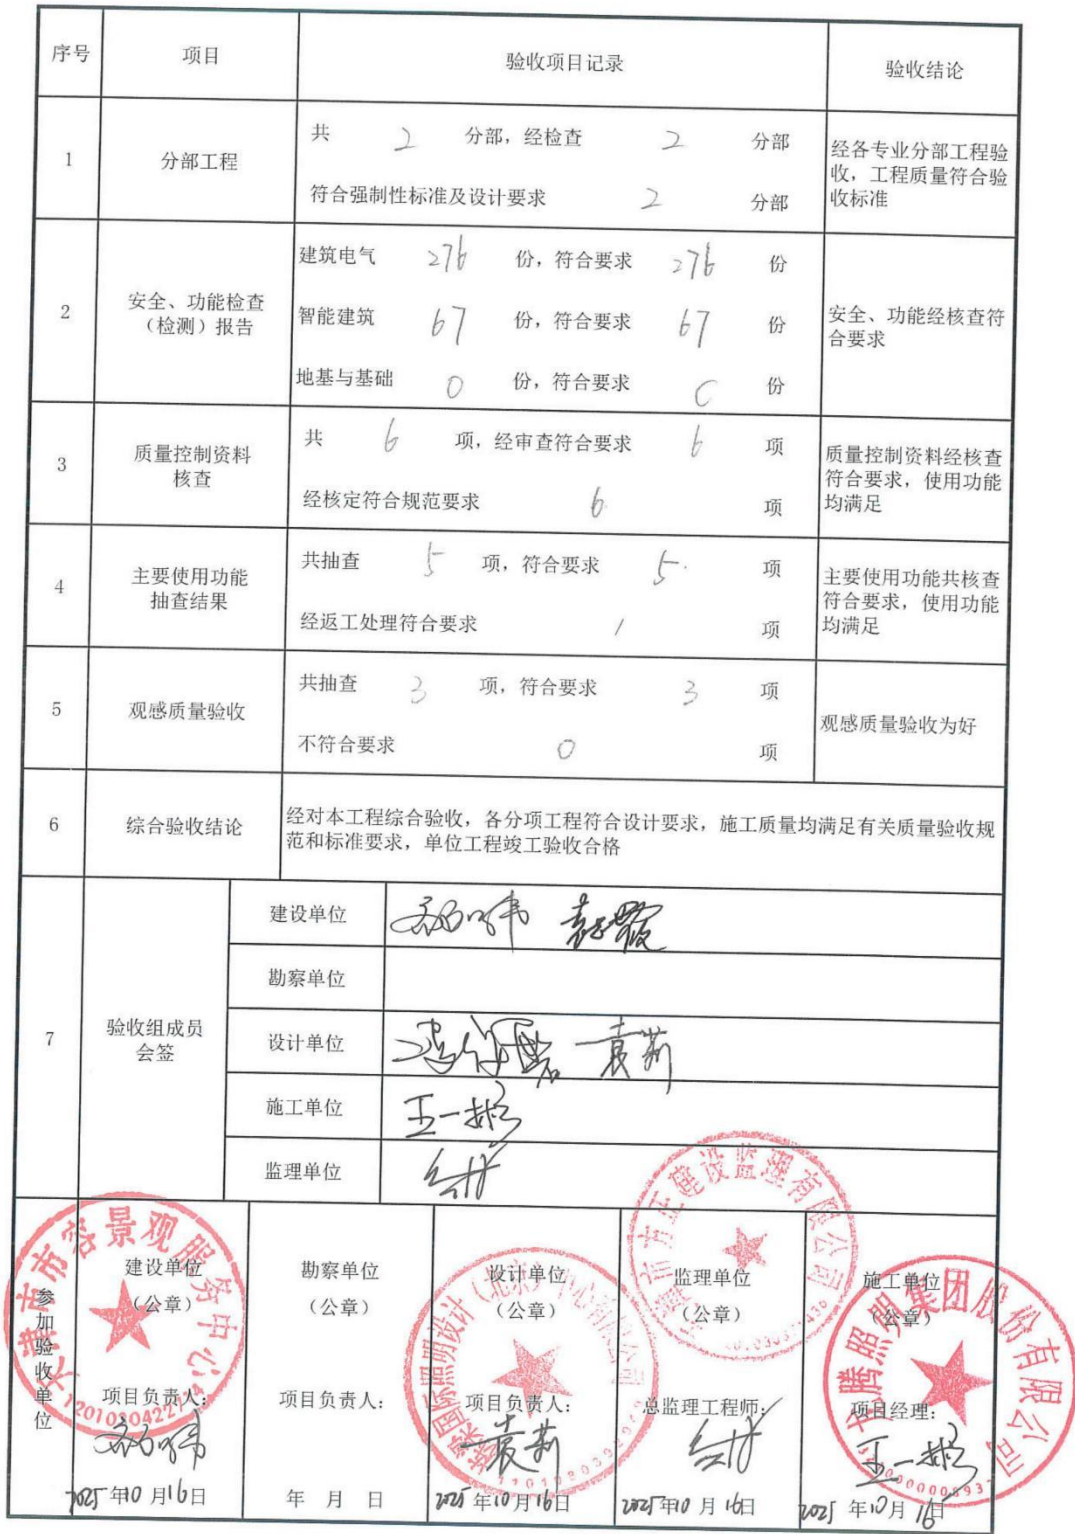 序号 项目 验收项目记录 验收结论
1 分部工程
共 2 分部，经检查 2 分部
符合强制性标准及设计要求 2 分部
经各专业分部工程验
收，工程质量符合验
收标准
2 安全、功能检查
（检测）报告
建筑电气 276 份，符合要求 276 份
智能建筑 67 份，符合要求 67 份
地基与基础 0 份，符合要求 0 份
安全、功能经核查符
合要求
3 质量控制资料
核查
共 6 项，经审查符合要求 6 项
经核定符合规范要求 6 项
质量控制资料经核查
符合要求，使用功能
均满足
4 主要使用功能
抽查结果
共抽查 5 项，符合要求 5 项
经返工处理符合要求 / 项
主要使用功能共核查
符合要求，使用功能
均满足
5 观感质量验收
共抽查 3 项，符合要求 3 项
不符合要求 0 项
观感质量验收为好
6 综合验收结论
经对本工程综合验收，各分项工程符合设计要求，施工质量均满足有关质量验收规
范和标准要求，单位工程竣工验收合格
7 验收组成员
会签
建设单位
勘察单位
设计单位 袁莉
施工单位 王一彬
监理单位
参加验收单位
建设单位
（公章）
项目负责人：
2025年10月16日
天津市市容景观服务中心
勘察单位
（公章）
项目负责人：
年 月 日
设计单位
（公章）
项目负责人：
袁莉
2025年10月16日
国际照明设计（北京）中心有限公司
监理单位
（公章）
总监理工程师：
2025年10月16日
市方正建设监理有限公司
施工单位
（公章）
项目经理：
王一彬
2025年10月16日
腾照明集团股份有限公司